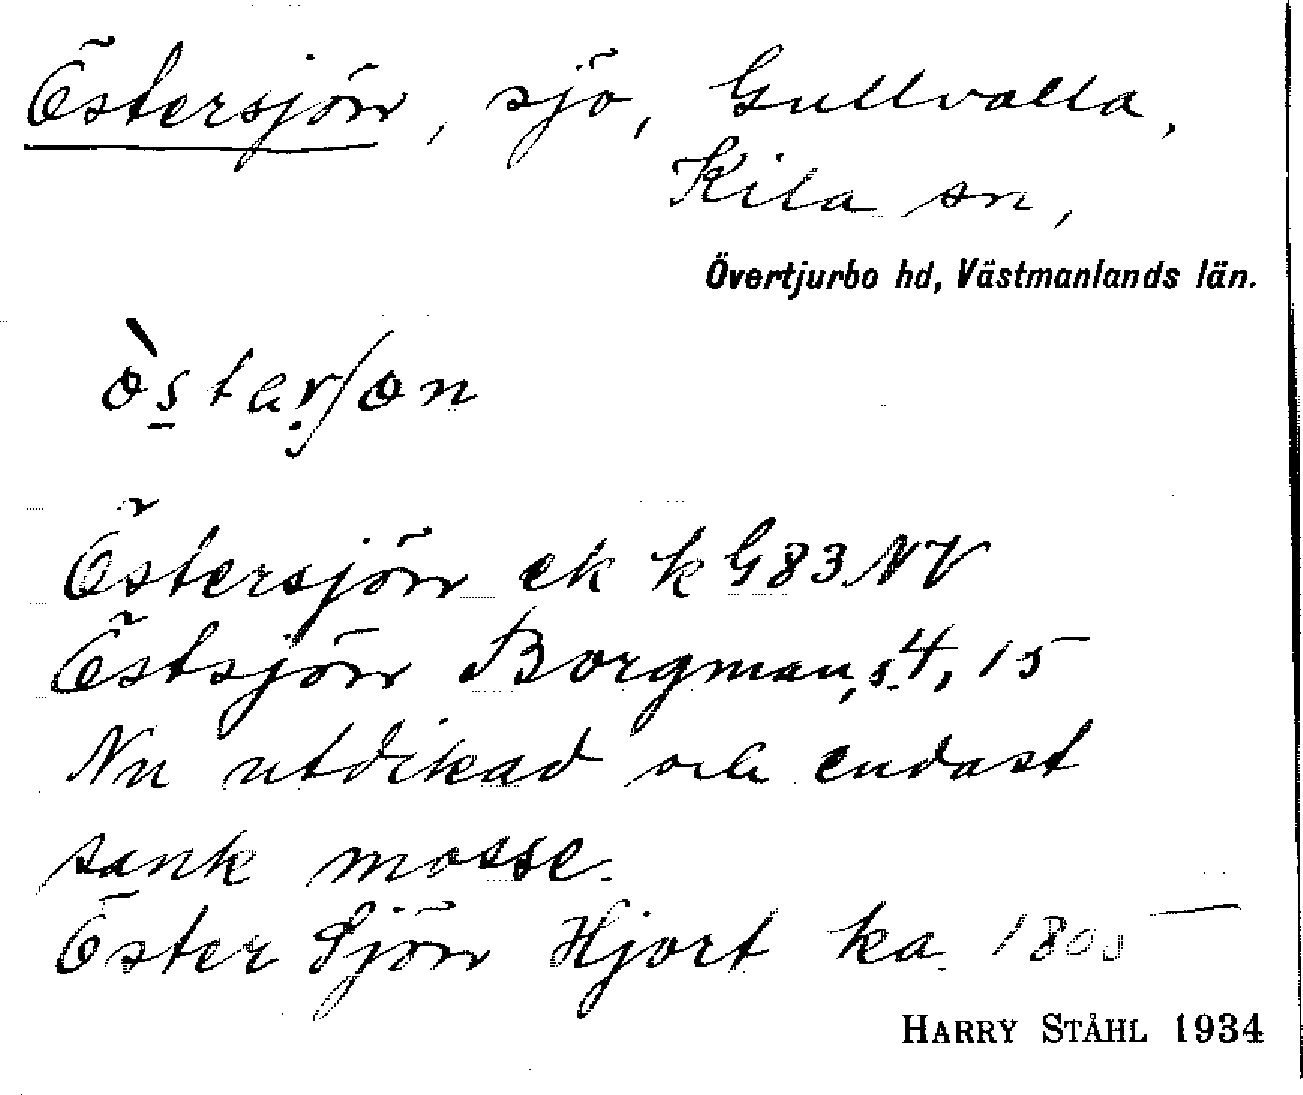 Östersjön, sjö, Gullvalla,
Kila sn,
Övertjurbo hd, Västmanlands län.
östarʃon
Östersjön ek k G83NV
Östsjön Borgman, s. 4, 15
Nu utdikad och endast
sank mosse.
Öster Sjön Hjort ka 1805
HARRY STÅHL 1934